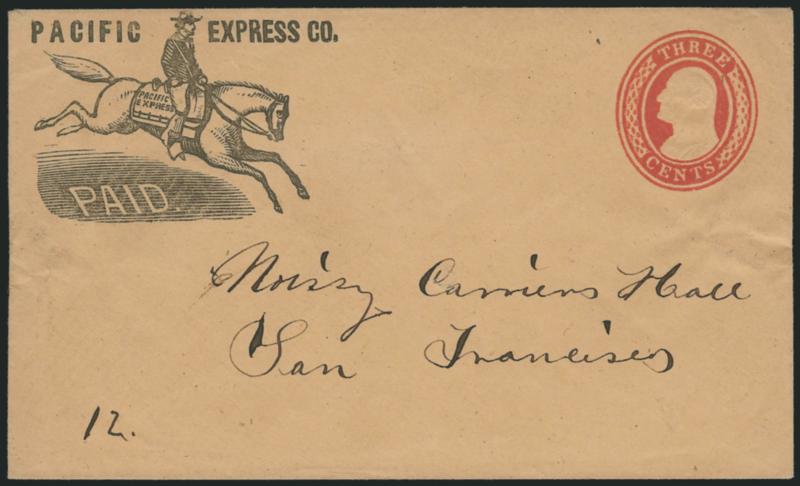 PACIFIC EXPRESS CO.
PACIFIC
EXPRESS
PAID
THREE
CENTS
Noisy Carriers Hall
San Francisco
12.